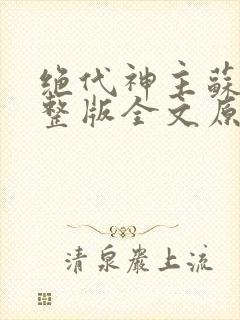 绝代神主蘇
整版全文原
清泉巖上流